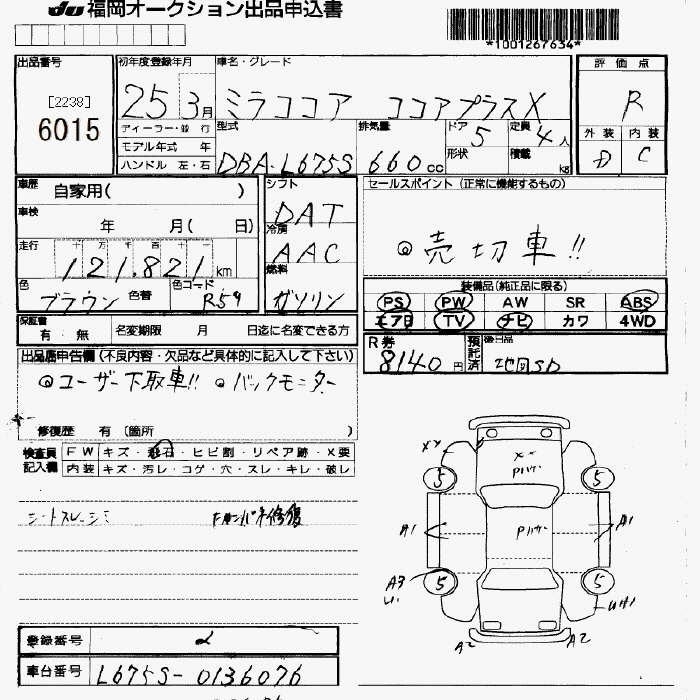 JU 福岡オークション出品申込書
*1001267634*
出品番号 初年度登録年月 車名・グレード 評価点
[2238]
6015
25 3月 ミラココア ココアプラスX R
ディーラー・並行 型式 排気量 ドア 5 定員 4人 外装 内装
モデル年式 年 形状 積載 kg D C
ハンドル 左・右 DBA-L675S 660cc
車歴 自家用( ) シフト DAT セールスポイント (正常に機能するもの)
車検 年 月( 日) 冷房 AAC ◎売切車!!
走行 十万千百十一
121,821km 燃料 ガソリン
装備品(純正品に限る)
色 ブラウン 色替 色コード R59
PS PW AW SR ABS
エアB TV ナビ カワ 4WD
保証書 有・無 名変期限 月 日迄に名変できる方
R券 8140円 預託済 後日品 地図SD
出品店申告欄 (不良内容・欠品など具体的に記入して下さい)
◎ユーザー下取車!! ◎バックモニター
修復歴 有 (箇所 )
検査員記入欄 FW キズ・飛石・ヒビ割・リペア跡・X要
内装 キズ・汚レ・コゲ・穴・スレ・キレ・破レ
シートスレ・シミ
5 5
A1 A1
A3
5 5
A2 A2
登録番号
車台番号 L675S-0136076